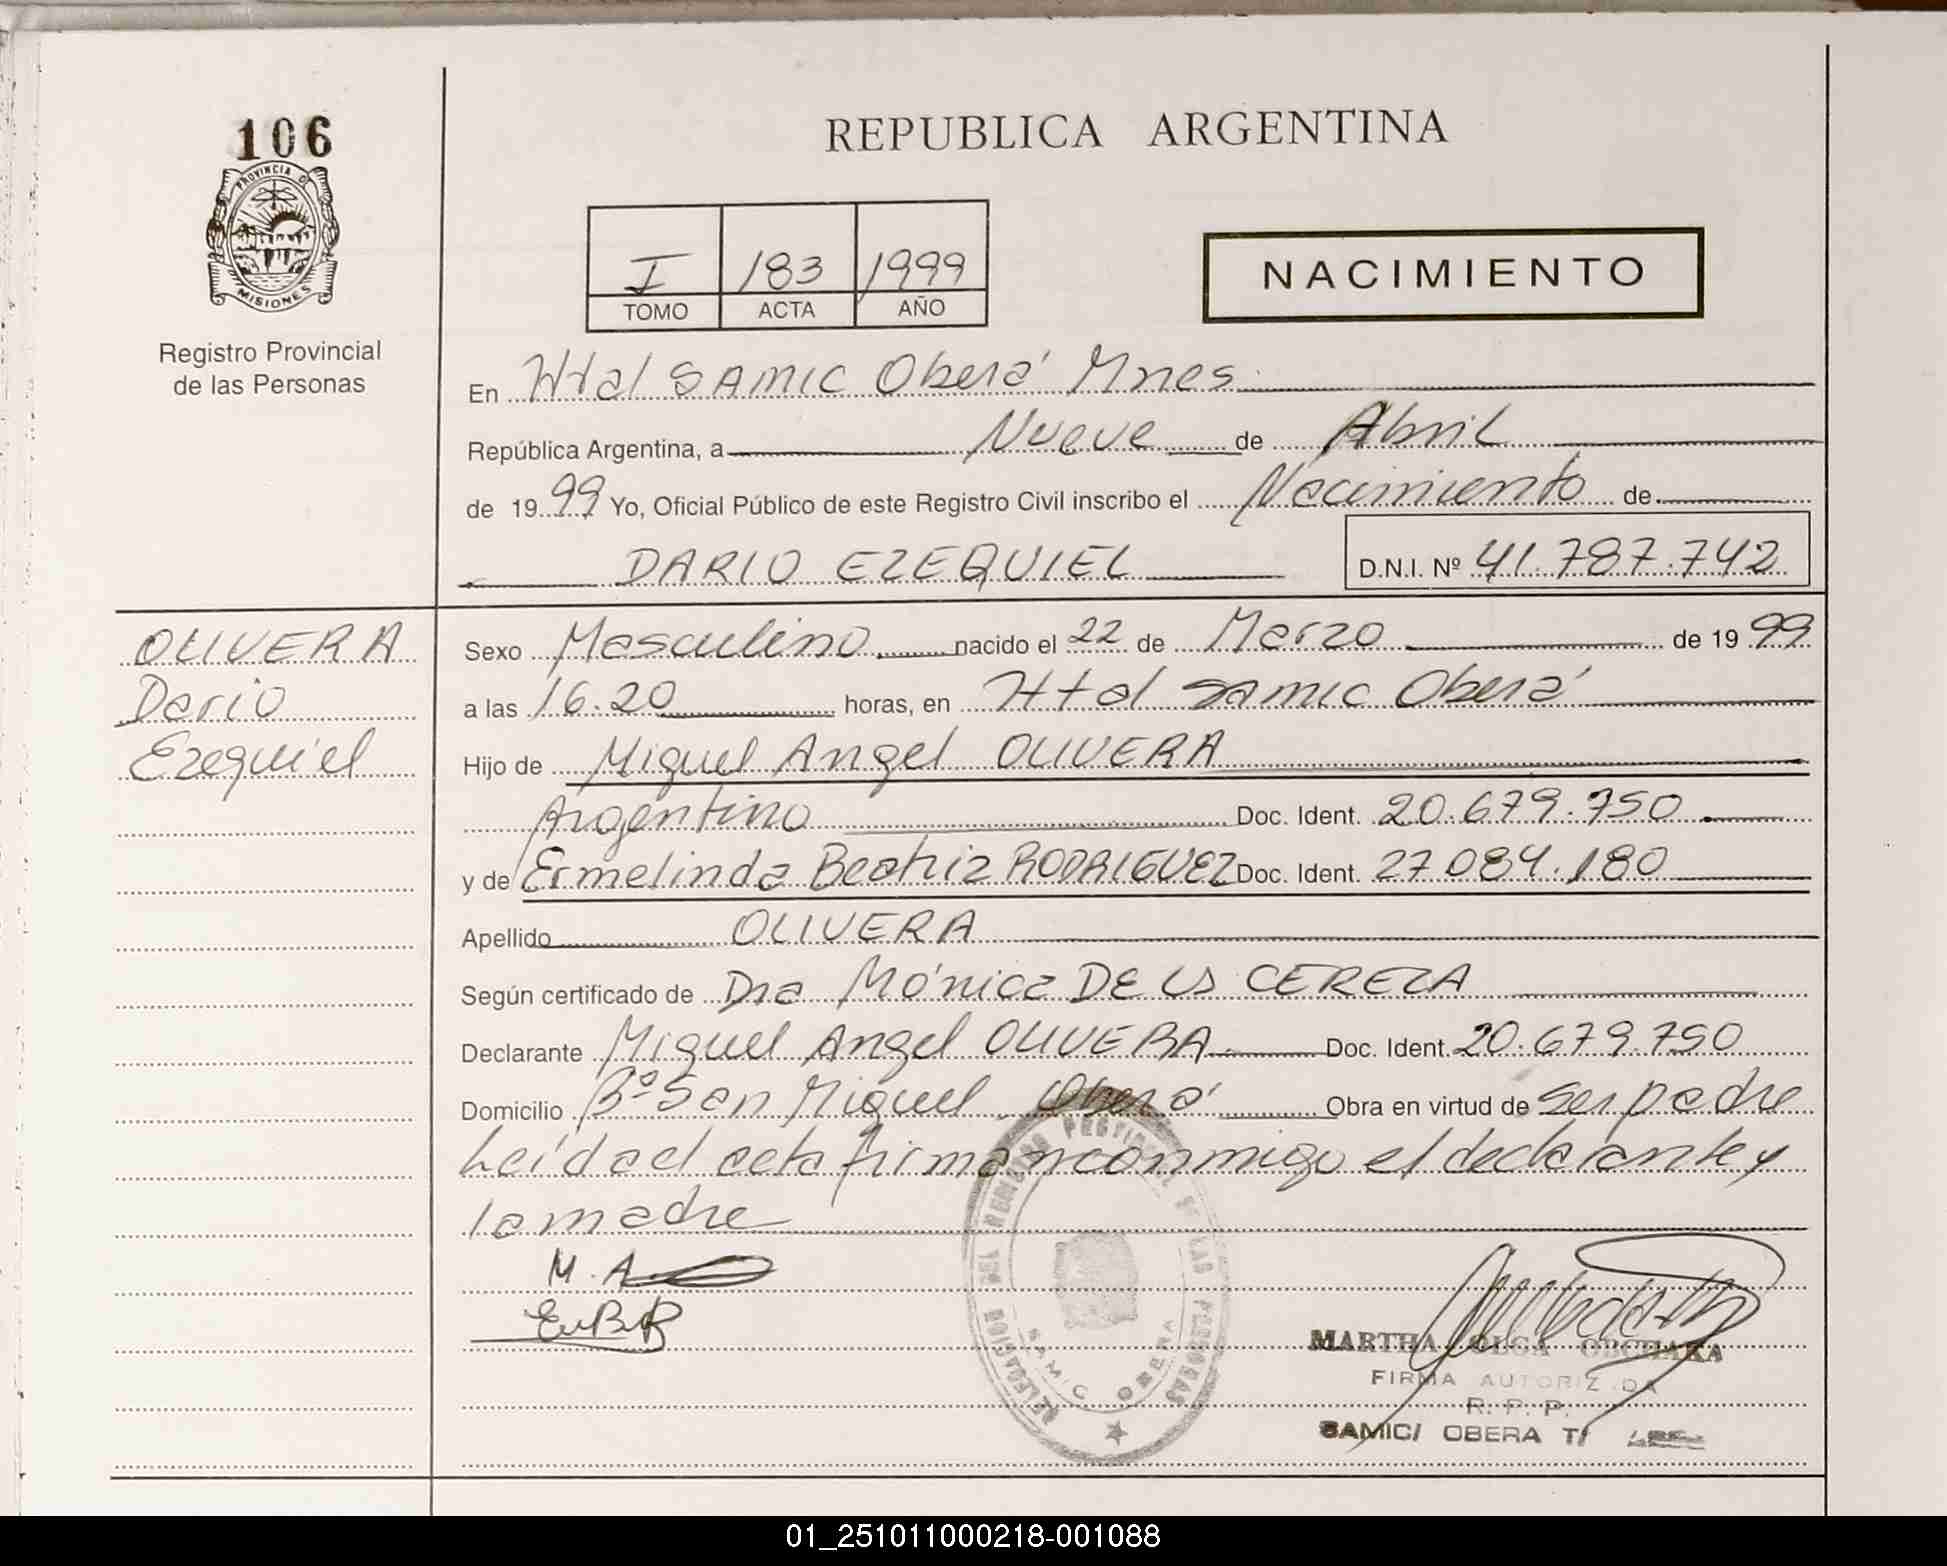 106
PROVINCIA D
MISIONES
Registro Provincial
de las Personas
REPUBLICA ARGENTINA
I 183 1999
TOMO ACTA AÑO
NACIMIENTO
En Htal SAMIC Oberá Mnes
República Argentina, a Nueve de Abril
de 1999 Yo, Oficial Público de este Registro Civil inscribo el Nacimiento de
DARIO EZEQUIEL D.N.I. Nº 41.787.742
OLIVERA
Dario
Ezequiel
Sexo Masculino nacido el 22 de Marzo de 1999
a las 16.20 horas, en Htal Samic Oberá
Hijo de Miguel Angel OLIVERA
Argentino Doc. Ident. 20.679.750
y de Ermelinda Beatriz RODRIGUEZ Doc. Ident. 27.084.180
Apellido OLIVERA
Según certificado de Dra Mónica DE LA CEREZA
Declarante Miguel Angel OLIVERA Doc. Ident. 20.679.750
Domicilio Bº San Miguel Oberá Obra en virtud de ser padre
Leída el acta firman conmigo el declarante y
la madre
M. A
E.B.R
DELEGACION DEL REGISTRO PROVINCIAL DE LAS PERSONAS
SAMIC OBERA
MARTHA OLGA OBCHAKA
FIRMA AUTORIZADA
R. P. P.
SAMIC/ OBERA T/
01_251011000218-001088